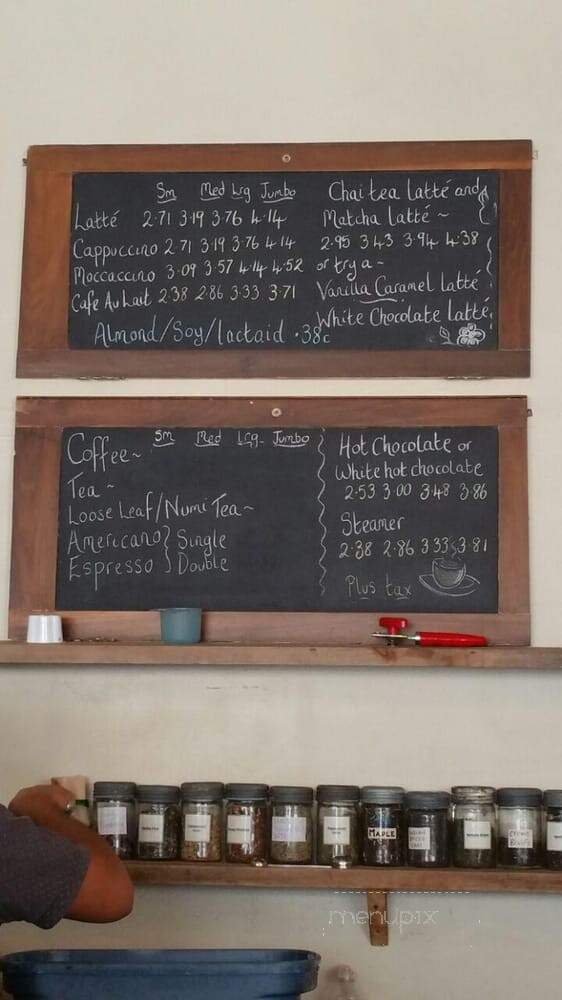 Sm Med Lrg Jumbo
Latté 2.71 3.19 3.76 4.14
Cappuccino 2.71 3.19 3.76 4.14
Moccaccino 3.09 3.57 4.14 4.52
Cafe Au Lait 2.38 2.86 3.33 3.71
Almond/Soy/lactaid .38c
Chai tea latté and
Matcha latté ~
2.95 3.43 3.94 4.38
or try a ~
Vanilla Caramel latté
White Chocolate latté
Sm Med Lrg Jumbo
Coffee ~
Tea ~
Loose Leaf/Numi Tea ~
Americano } Single
Espresso } Double
Hot Chocolate or
White hot chocolate
2.53 3.00 3.48 3.86
Steamer
2.38 2.86 3.33 3.81
Plus tax
MAPLE
menupix